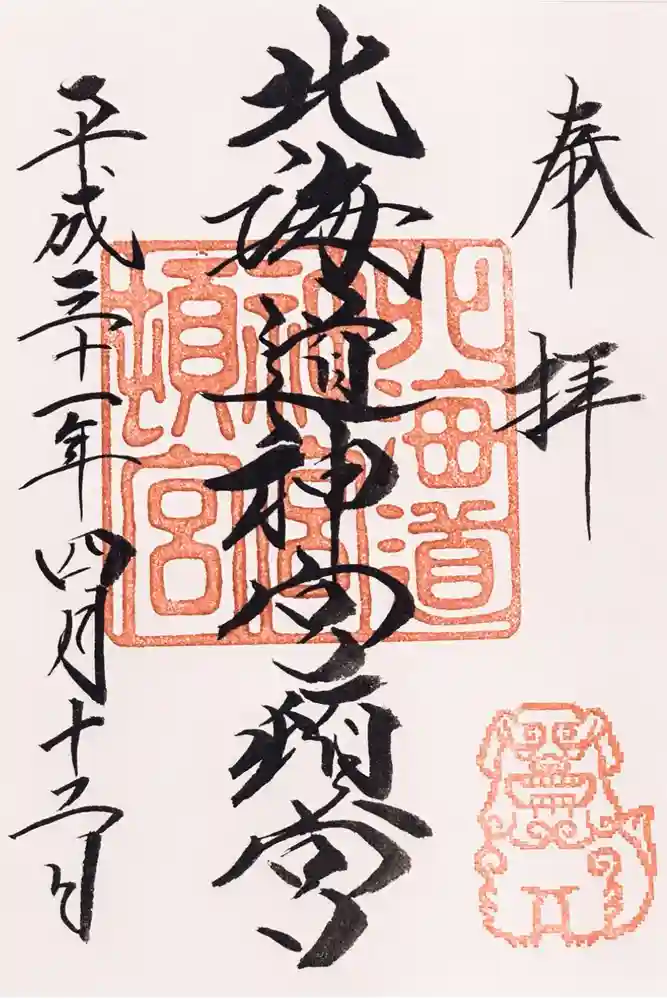 奉拝
北海道神宮頓宮
北海道
神宮
頓宮
平成三十一年四月十二日